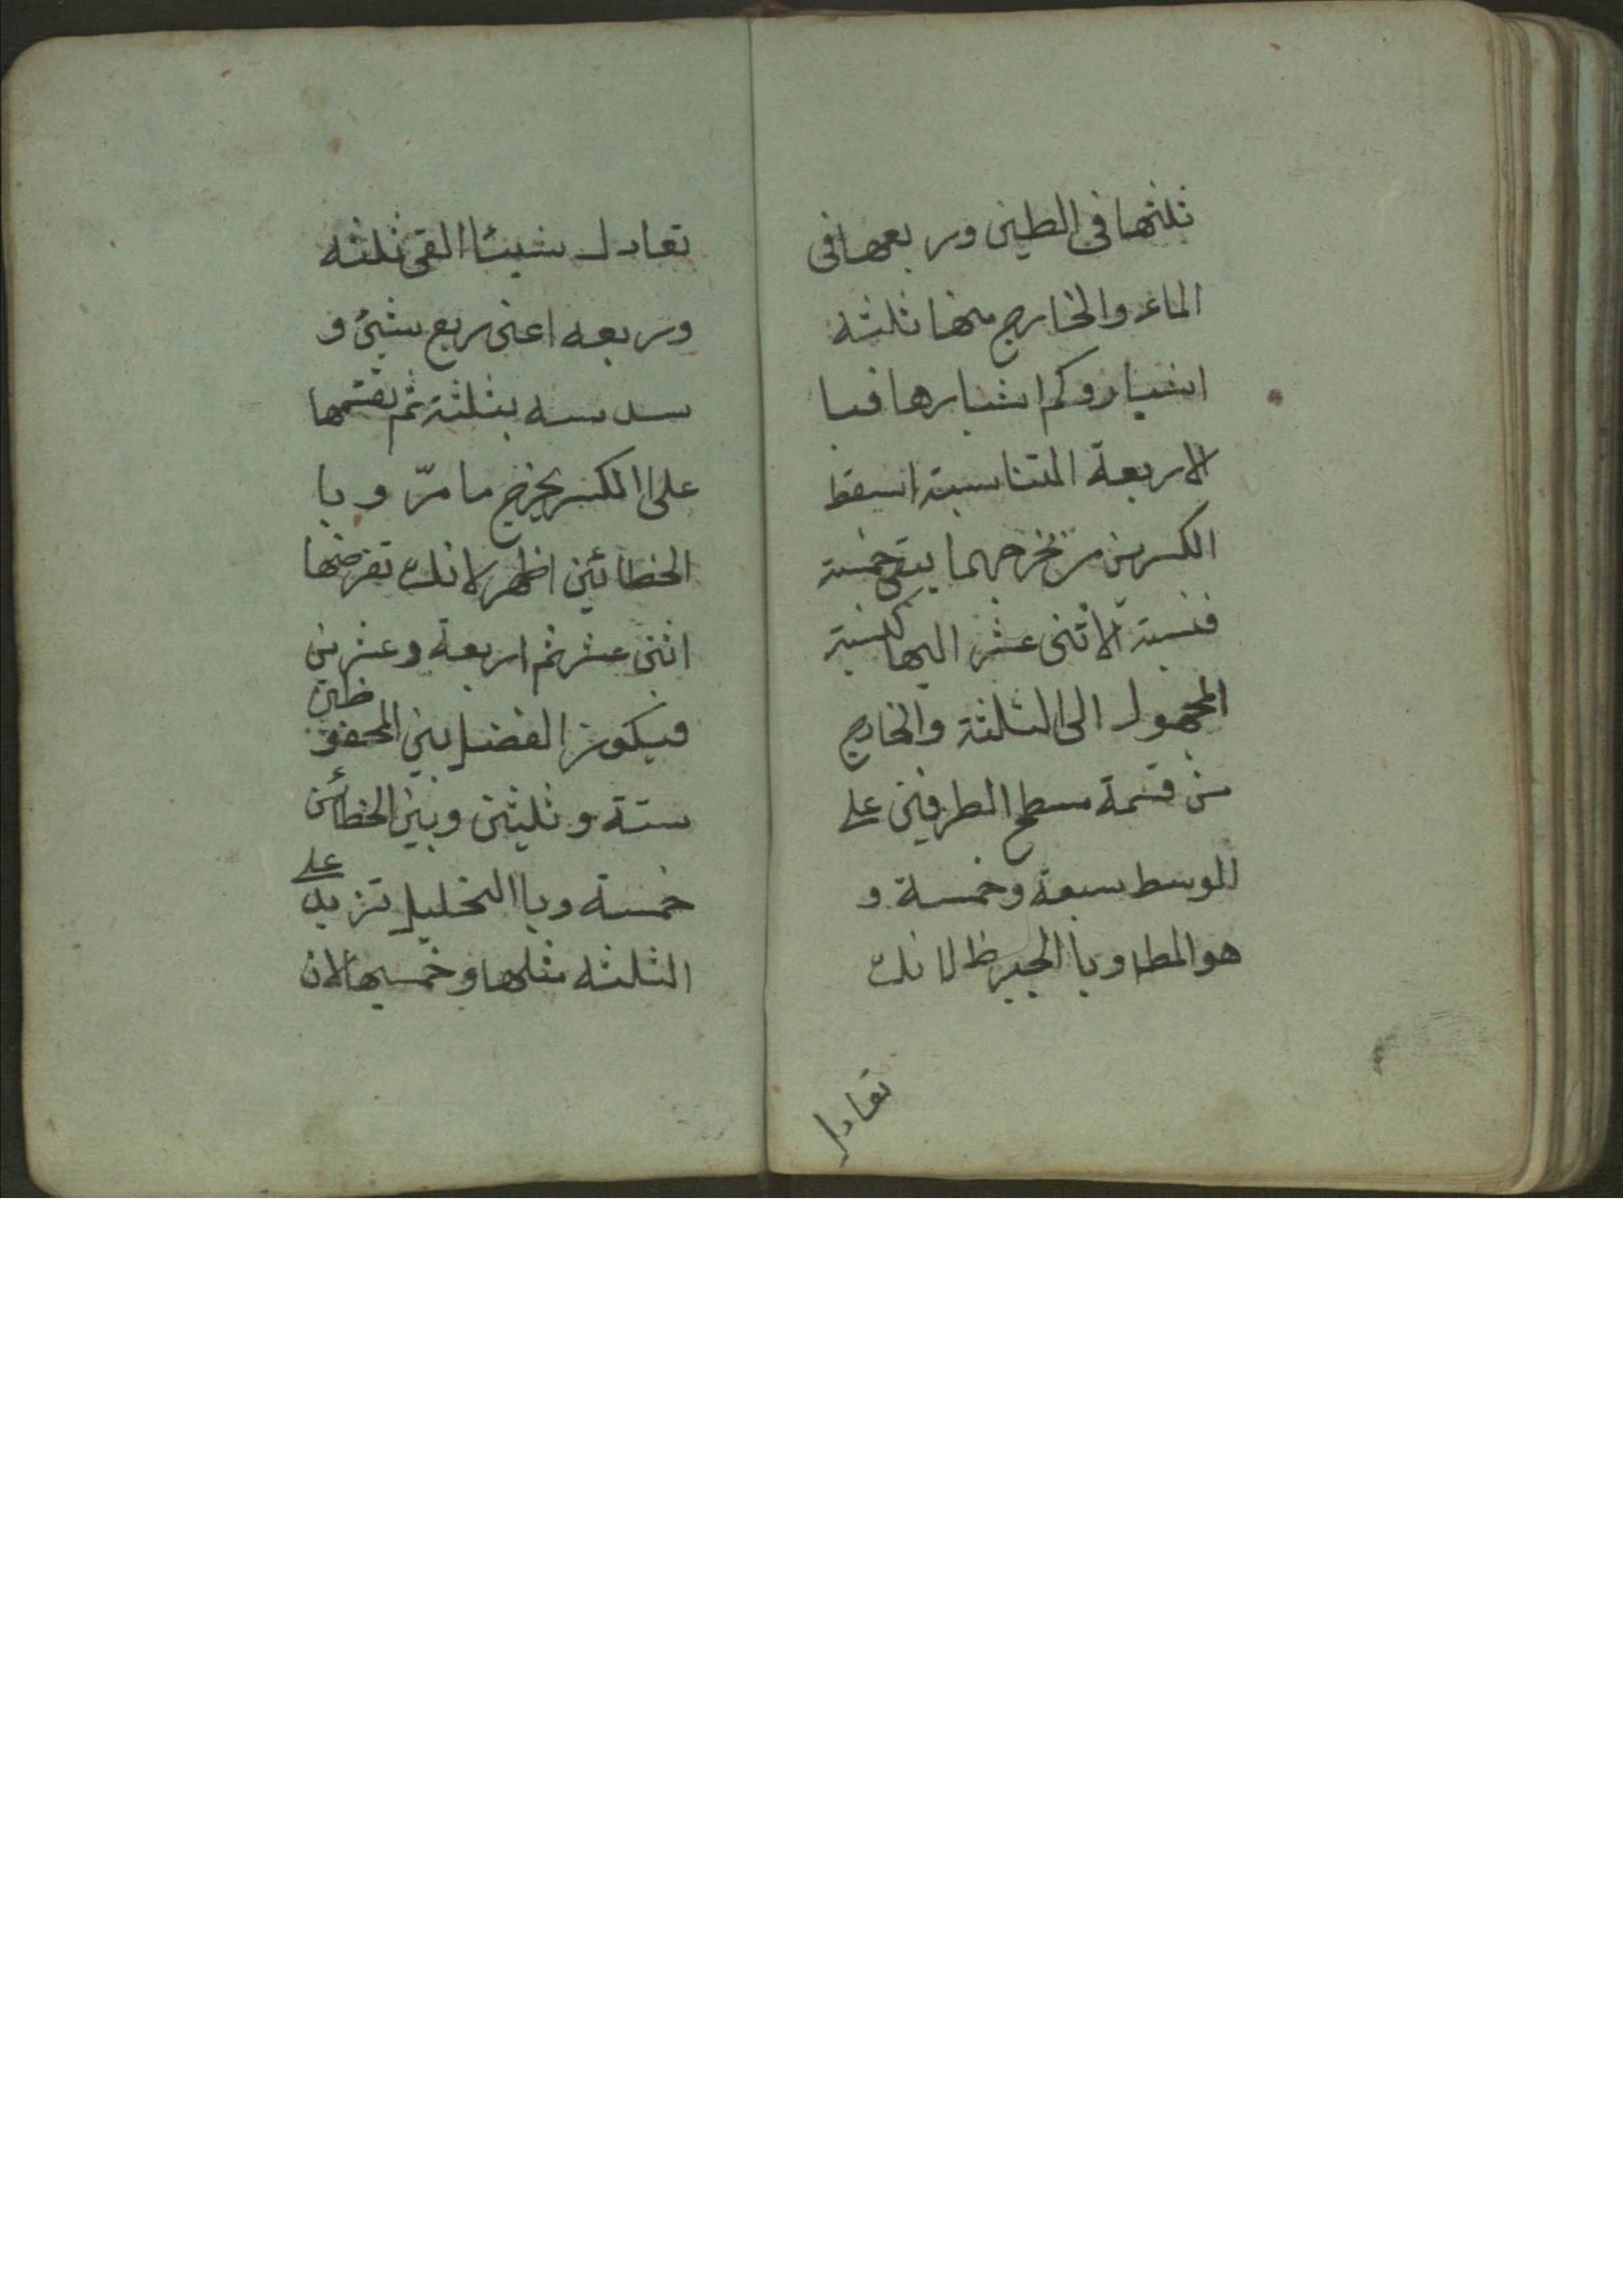 ثلثها فى الطين وربعها فى
الماء والخارج منها ثلثه
اشبار وكم اشبارها فبا
لاربعة المتناسبة اسقط
الكسرين من مخرجهما يبقى خمسة
فنسبة الاثنى عشر اليها كنسبة
المجهول الى الثلثة والخارج
من قسمة سطح الطرفين على
الوسط سبعة وخمسة و
هو المط وبا الجبر ظ لانك
تعادل
تعادل شيئا القى ثلثه
وربعه اعنى ربع شيئ و
سدسه بثلثة ثم تقسمها
على الكسر يخرج ما مرّ وبا
الخطائين اظهر لانك تفرضها
اثنى عشر ثم اربعة وعشرين
فيكون الفضل بين المحفو ظين
ستة وثلثين وبين الخطائين
خمسة وبا التحليل تزيد على
الثلثه مثلها وخمسيها لان